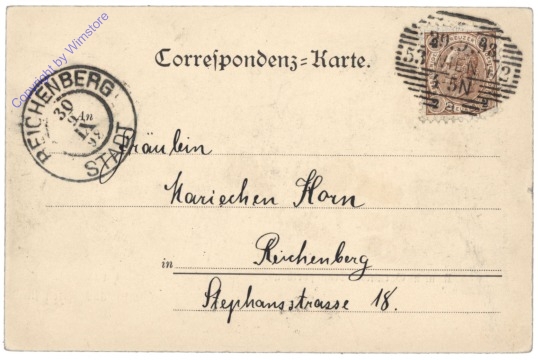 Copyright by Wimstore
Correspondenz=Karte.
REICHENBERG
STADT
30
IX
98
Fräulein
Mariechen Horn
in Reichenberg
Stephansstrasse 18.